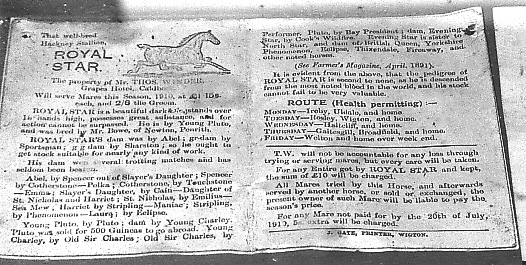 That well-bred
Hackney Stallion,
ROYAL
STAR
The property of Mr. THOS. WINDER,
Grapes Hotel,
Will serve Mares this Season, 1910, at £1 15s.
each, and 2/6 the Groom.
ROYAL STAR is a beautiful dark stands over
hands high, possesses great substance, and for
action cannot be surpassed. He is by Young Pluto,
and was bred by Mr. Bowe, of Newton, Penrith.
ROYAL STAR'S dam was by Abel; gr-dam by
Sportsman; g g dam by Shariton; so he ought to
get stock suitable for nearly any kind of work.
His dam won several trotting matches and has
seldom been beaten.
Abel, by Spencer out of Slayer's Daughter; Spencer
by Cotherstone—Polka; Cotherstone, by Touchstone
—Emma; Slayer's Daughter, by Cain—Daughter of
St. Nicholas and Harriet; St. Nicholas, by Emilius—
Sea Mew; Harriet by Stripling—Maniac; Stripling,
by Phenomenon—Laura; by Eclipse.
Young Pluto, by Pluto; dam by Young Charley.
Pluto was sold for 500 Guineas to go abroad. Young
Charley, by Old Sir Charles; Old Sir Charles, by
Performer. Pluto, by Bay President; dam, Evening
Star, by Cook's Wildfire. Evening Star is sister to
North Star, and dam of British Queen, Yorkshire
Phenomenon, Eclipse, Fireaway, and
other noted horses.
(See Farmer's Magazine, April, 1891).
It is evident from the above, that the pedigree of
ROYAL STAR is second to none, as he is descended
from the most noted blood in the world, and his stock
cannot fail to be very valuable.
ROUTE (Health permitting):—
MONDAY—Ireby, Uldale, and home
TUESDAY—Wigton, and home.
WEDNESDAY—and home.
THURSDAY—Broadfield, and home.
FRIDAY—and home over week end.
T.W. will not be accountable for any loss through
trying or serving mares, but every care will be taken.
For any Entire got by ROYAL STAR and kept,
the sum of £10 will be charged.
All Mares tried by this Horse, and afterwards
served by another horse, or sold or exchanged, the
present owner of such Mare will be liable to pay the
season's price.
For any Mare not paid for by the 20th of July,
1910, 5s extra will be charged.
PRINTER, WIGTON.